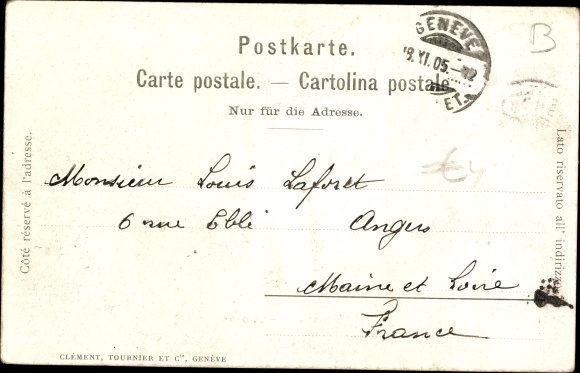 GENÈVE
XI.05
B
Postkarte.
Carte postale. — Cartolina postale
Nur für die Adresse.
Côté réservé à l'adresse.
Lato riservato all' indirizzo
Monsieur Louis Laforet
6 rue Eblé
Angers
Maine et Loire
France
CLÉMENT, TOURNIER ET Cie, GENÈVE